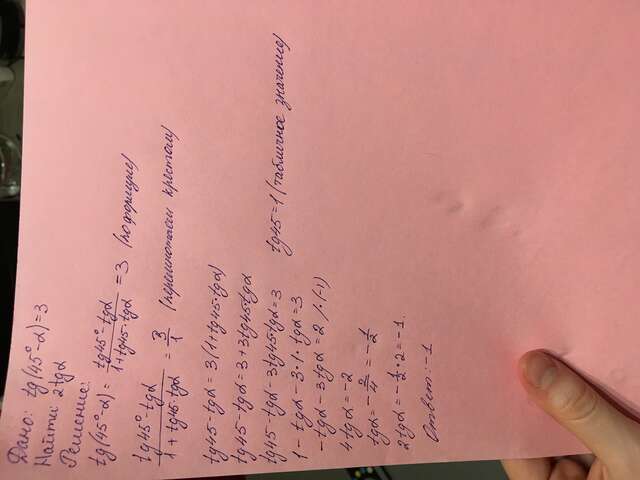 Дано: tg(45°-α)=3
Найти: 2tgα
Решение:
tg(45°-α) = (tg45°-tgα)/(1+tg45·tgα) = 3 (по формуле)
(tg45°-tgα)/(1+tg45·tgα) = 3/1 (перемножаем крестом)
tg45-tgα = 3(1+tg45·tgα)
tg45-tgα=3+3tg45·tgα
tg45-tgα-3tg45·tgα=3 tg45=1 (табличное значение)
1-tgα-3·1·tgα=3
-tgα-3tgα=2 /·(-1)
4tgα=-2
tgα=-2/4=-1/2
2tgα=-1/2·2=-1.
Ответ:-1